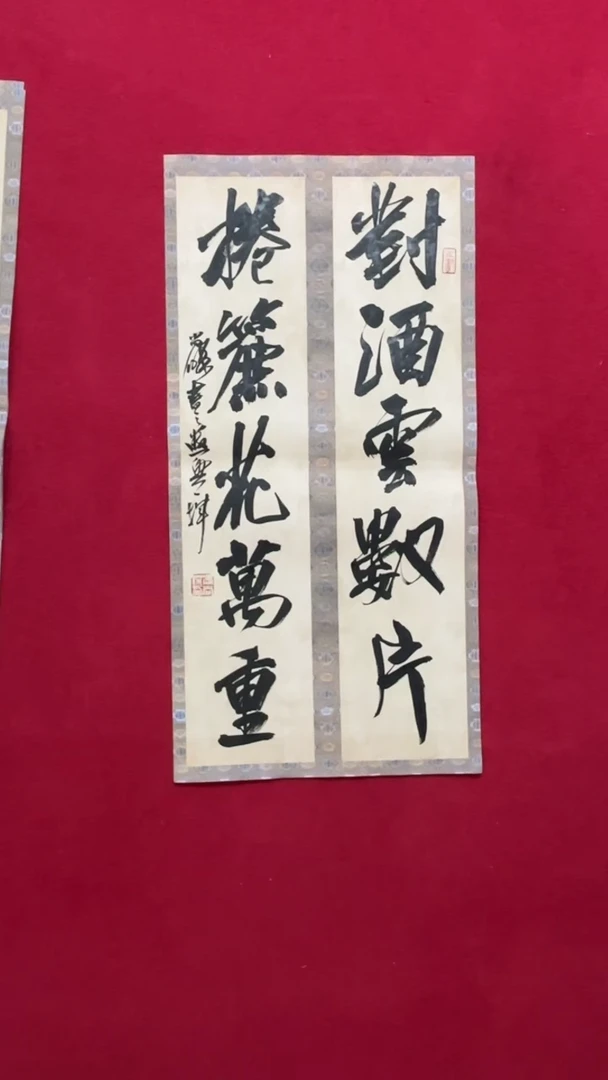 對酒雲數片
捲簾花萬重